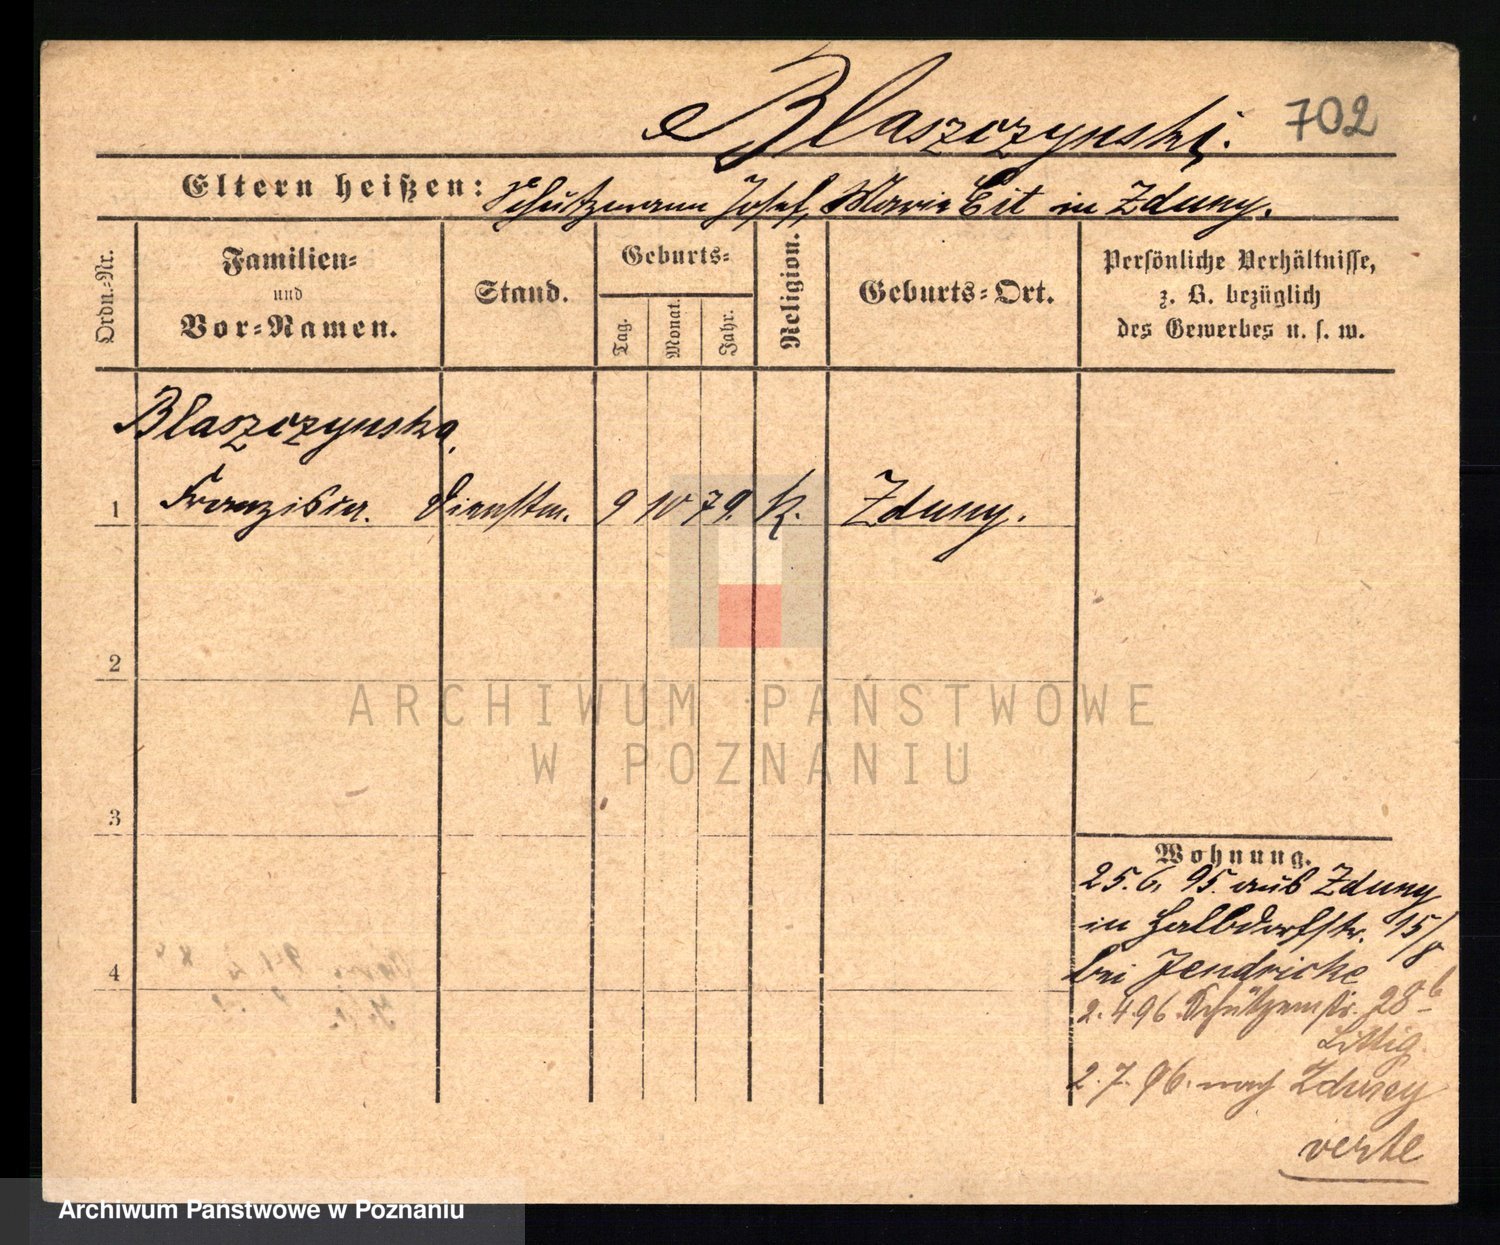 Blaszczynski. 702
Eltern heißen: Schutzmann Josef, Marie Cit in Zduny.
Ordn.-Nr.
Familien-
und
Vor-Namen.
Stand.
Geburts-
Tag.
Monat.
Jahr.
Religion.
Geburts-Ort.
Persönliche Verhältnisse,
z. B. bezüglich
des Gewerbes u. s. w.
Blaszczynska,
1 Franziska. Dienstm. 9 10 79. k. Zduny.
2
3
4
Wohnung.
25.6. 95. aus Zduny
in Halbdorfstr. 15/8
bei Jendricke
2.4.96. Schützenstr. 28b
Littig.
2.7.96. nach Zduny
verte
ARCHIWUM PAŃSTWOWE
W POZNANIU
Archiwum Państwowe w Poznaniu